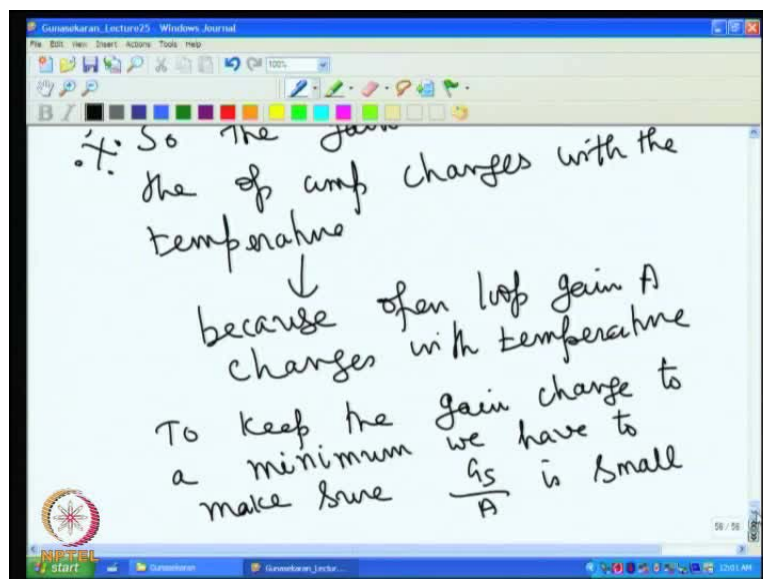 Gunasekaran_Lecture25 - Windows Journal
File Edit View Insert Actions Tools Help
100%
B I
∴ So the gain
the op amp changes with the
temperature
↓
because open loop gain A
changes with temperature
To keep the gain change to
a minimum we have to
make sure Gs/A is small
58 / 58
NPTEL
start
Gunasekaran
Gunasekaran_Lectur...
12:01 AM